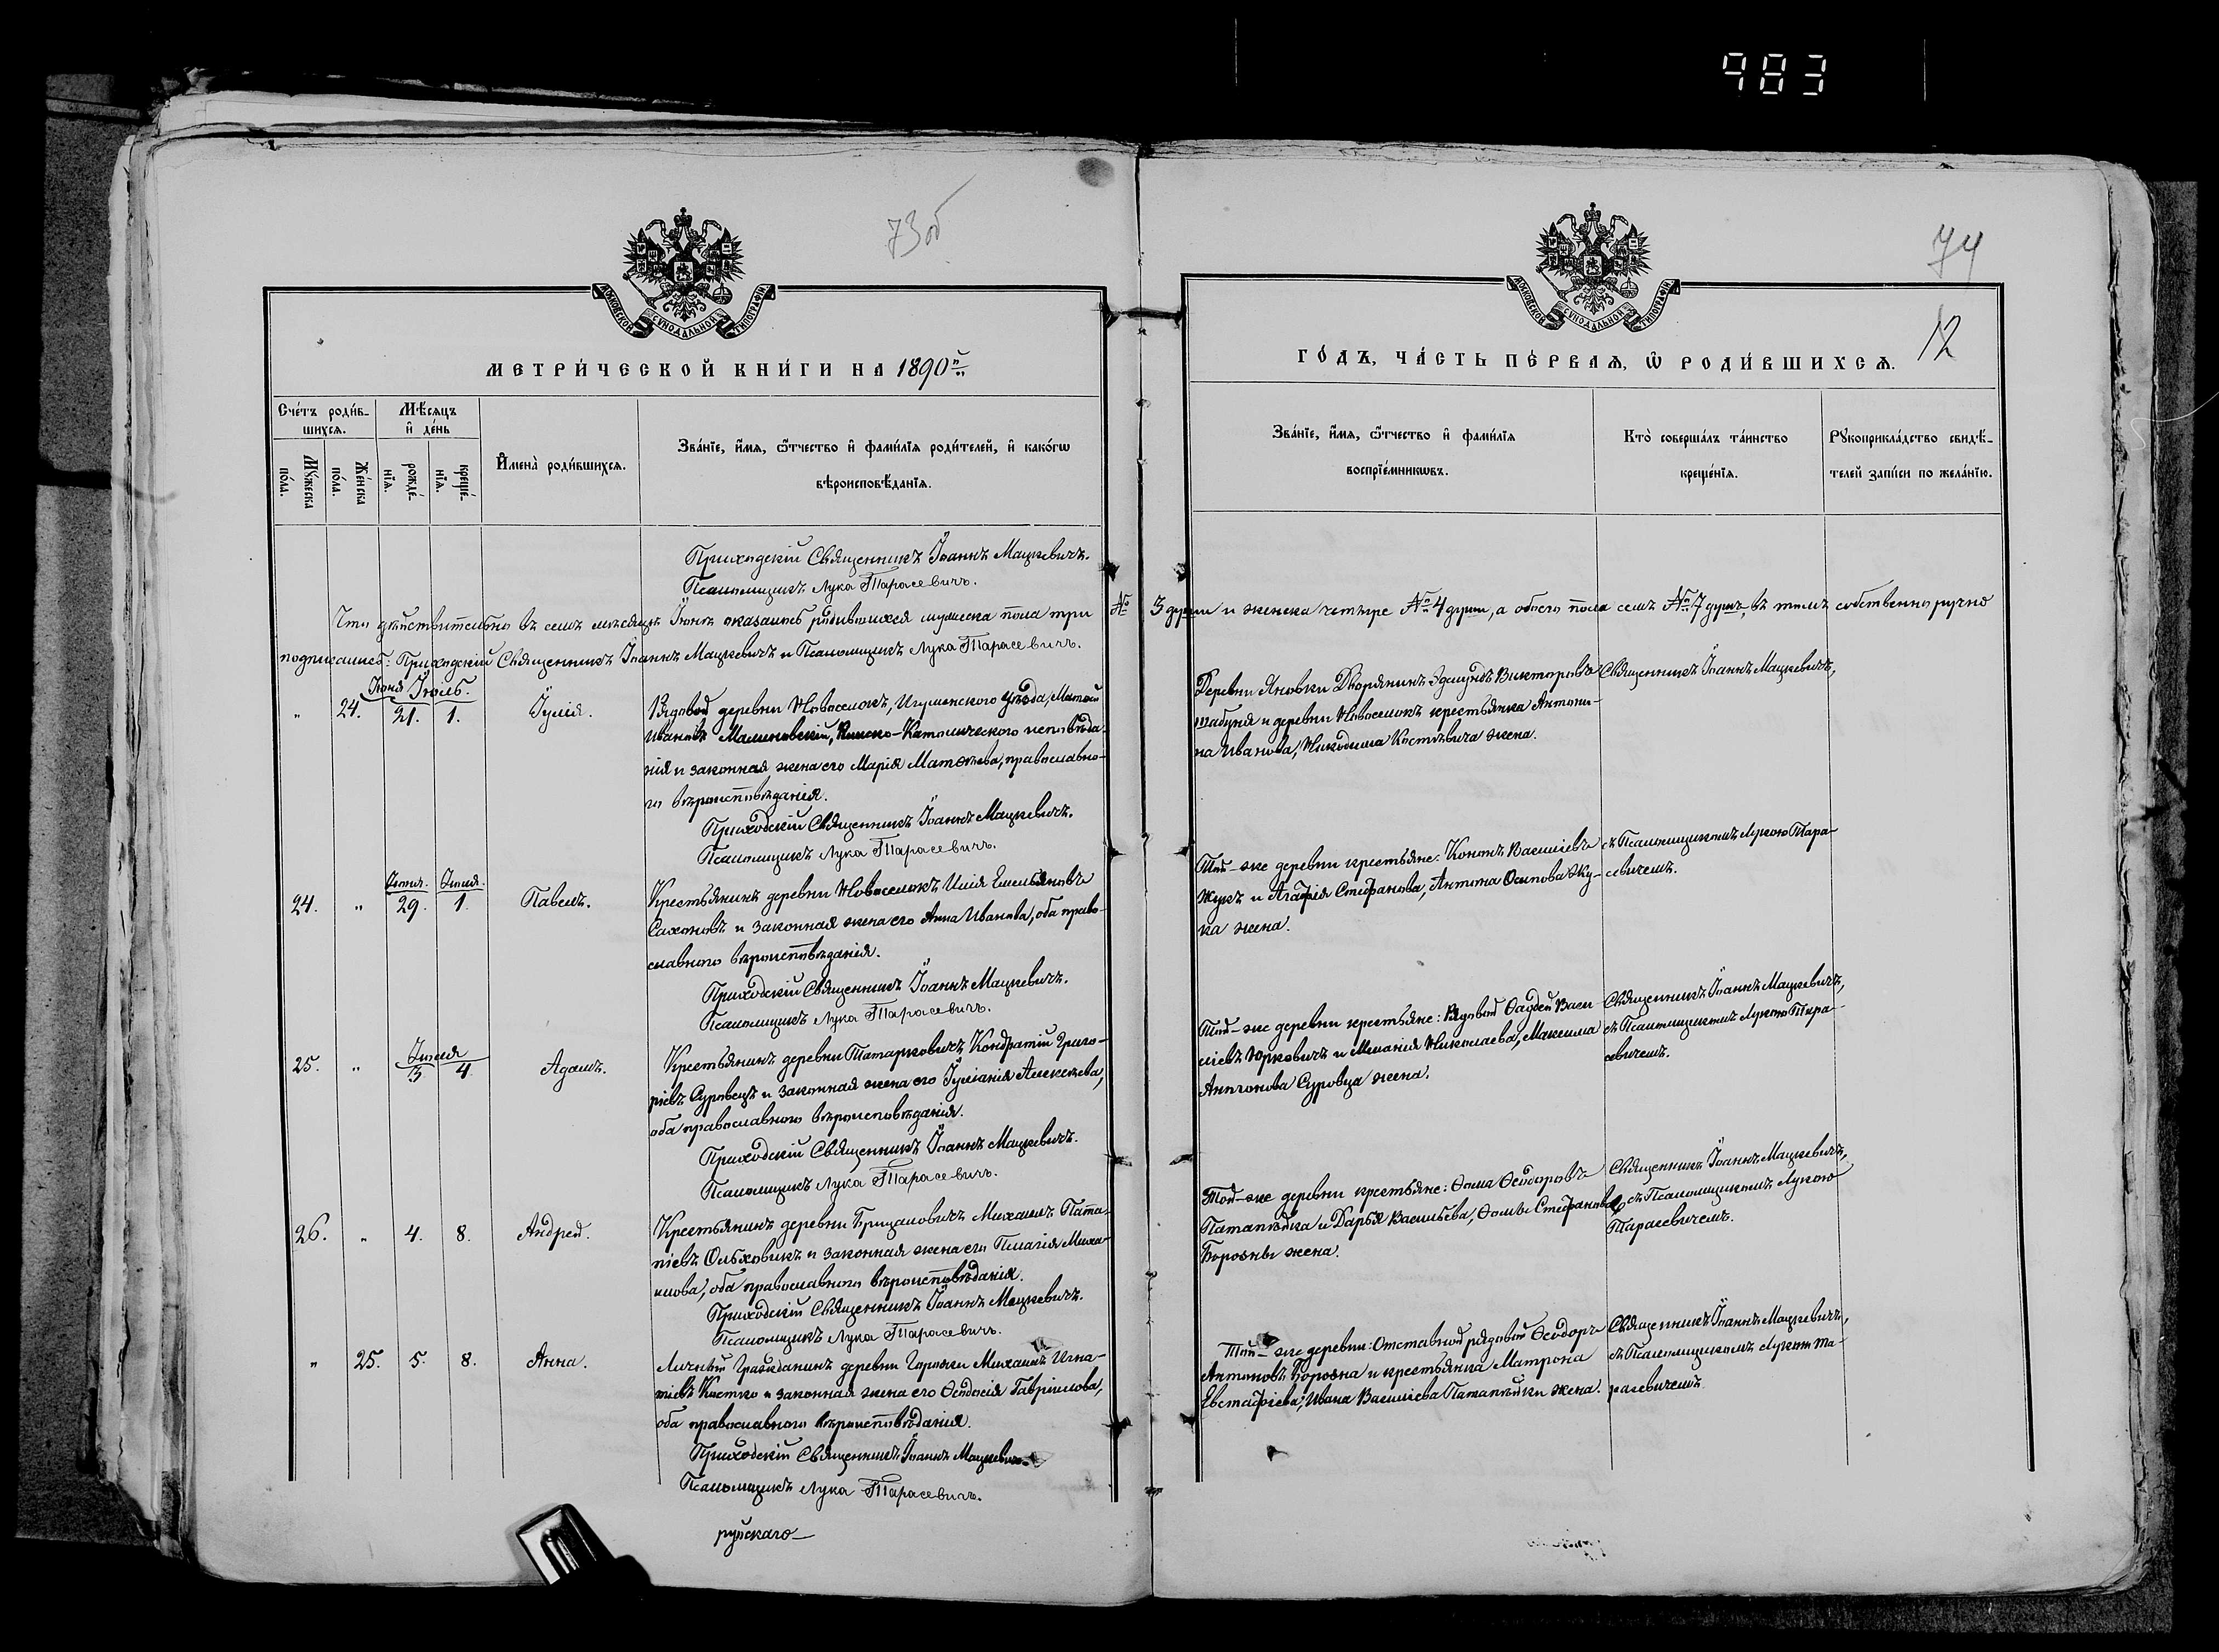 983
73об
74
12
МОСКОВСКОЙ СѴНОДАЛЬНОЙ ТИПОГРАФІИ
МОСКОВСКОЙ СѴНОДАЛЬНОЙ ТИПОГРАФІИ
МЕТРИ́ЧЕСКОЙ КНИ́ГИ НА 1890й
ГО́ДЪ, ЧА́СТЬ ПЕ́РВАѦ, Ѡ РОДИ́ВШИХСѦ.
Сче́тъ роди́вшихсѧ.
Мꙋ́жеска по́ла.
Же́нска по́ла.
Мѣ́сѧцъ и҆ де́нь
рожде́нїѧ.
креще́нїѧ.
И҆мена̀ роди́вшихсѧ.
Зва́нїе, и҆́мѧ, ѻ҆́тчество и҆ фами́лїѧ роди́телей, и҆ како́гѡ
вѣроисповѣ́данїѧ.
Зва́нїе, и҆́мѧ, ѻ҆́тчество и҆ фами́лїѧ
воспрїе́мникѡвъ.
Кто̀ соверша́лъ та́инство
креще́нїѧ.
Рꙋкоприкла́дство свидѣ́телей за́писи по жела́нїю.
Приходскій Священникъ Іоаннъ Мацкевичъ.
Псаломщикъ Лука Тарасевичъ.
Что дѣйствительно въ семъ мѣсяцѣ Іюнѣ оказалось родившихся мужеска пола три № 3 души и женска четыре № 4 души, а обоего пола семь № 7 душъ, въ томъ собственноручно
подписались: Приходскій Священникъ Іоаннъ Мацкевичъ и Псаломщикъ Лука Тарасевичъ.
Іюня Іюль.
" 24. 21. 1. Іулія.
Рядовой деревни Новоселокъ, Игуменского уѣзда, Матѳей
Ивановъ Малиновскій, Римско-Католического исповѣда-
нія и законная жена его Марія Матѳеева, православно-
го вѣроисповѣданія.
Приходскій Священникъ Іоаннъ Мацкевичъ.
Псаломщикъ Лука Тарасевичъ.
Деревни Яновки Дворянинъ Эдмундъ Викторовъ
Шабуня и деревни Новоселокъ крестьянка Антони-
на Иванова, Никодима Костевича жена.
Священникъ Іоаннъ Мацкевичъ,
Іюня. Іюля.
24. " 29. 1. Павелъ.
Крестьянинъ деревни Новоселокъ Илія Емельяновъ
Сахоновъ и законная жена его Анна Иванова, оба право-
славного вѣроисповѣданія.
Приходскій Священникъ Іоаннъ Мацкевичъ.
Псаломщикъ Лука Тарасевичъ.
Той-же деревни крестьяне: Кононъ Василіевъ
Жукъ и Агафія Стефанова, Антона Осипова Жу-
ка жена.
съ Псаломщикомъ Лукою Тара-
севичемъ.
Іюля
25. " 3 4. Адамъ.
Крестьянинъ деревни Татарковичъ Кондратій Григо-
ріевъ Суровецъ и законная жена его Іуліанія Алексѣева,
оба православного вѣроисповѣданія.
Приходскій Священникъ Іоаннъ Мацкевичъ.
Псаломщикъ Лука Тарасевичъ.
Той-же деревни крестьяне: Рядовой Ѳаддей Васи-
ліевъ Юрковичъ и Меланія Николаева, Максима
Антонова Суровца жена.
Священникъ Іоаннъ Мацкевичъ,
съ Псаломщикомъ Лукою Тара-
севичемъ.
26. " 4. 8. Андрей.
Крестьянинъ деревни Брицаловичъ Михаилъ Пата-
піевъ Ольховикъ и законная жена его Пелагія Миха-
илова, оба православного вѣроисповѣданія.
Приходскій Священникъ Іоаннъ Мацкевичъ.
Псаломщикъ Лука Тарасевичъ.
Той-же деревни крестьяне: Ѳома Ѳеодоровъ
Патапейка и Дарья Васильева, Ѳомы Стефанова
Боровны жена.
Священникъ Іоаннъ Мацкевичъ,
съ Псаломщикомъ Лукою
Тарасевичемъ.
" 25. 5. 8. Анна.
Личный Гражданинъ деревни Горожи Михаилъ Игна-
тіевъ Костко и законная жена его Ѳеодосія Гавріилова,
оба православного вѣроисповѣданія.
Приходскій Священникъ Іоаннъ Мацкевичъ.
Псаломщикъ Лука Тарасевичъ.
Той-же деревни: Отставной рядовой Ѳеодоръ
Антоновъ Боровна и крестьянка Матрона
Евстафіева, Ивана Василіева Патапейки жена.
Священникъ Іоаннъ Мацкевичъ,
съ Псаломщикомъ Лукою Та-
расевичемъ.
руйскаго